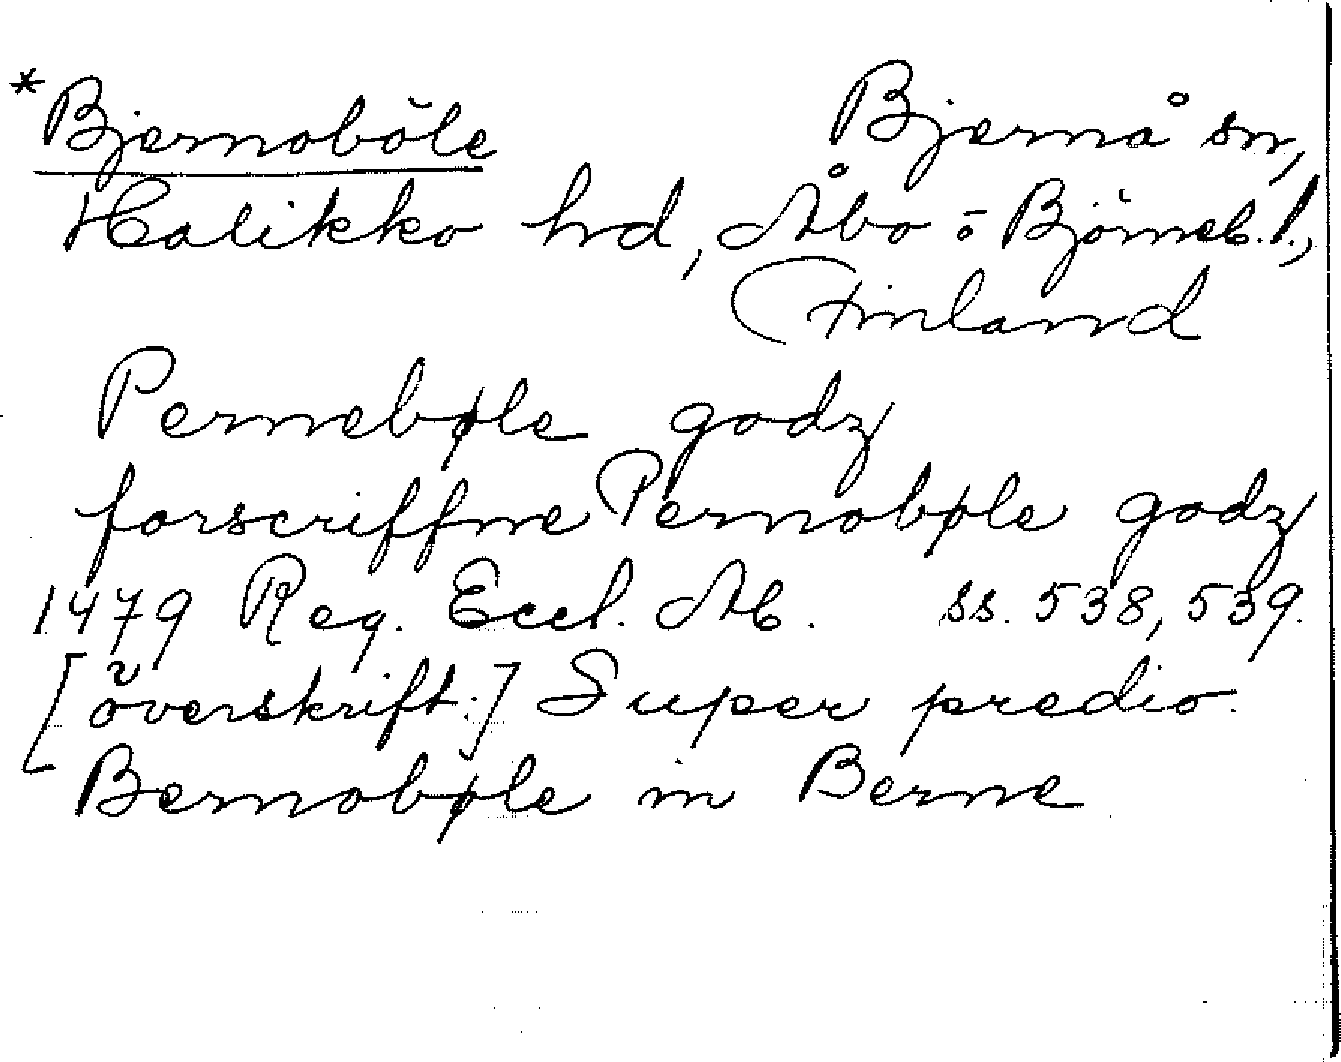 *Bjernoböle Bjernå sn,
Halikko hd, Åbo o Björneb. l.,
Finland
Pernebøle godz
forscriffne Pernobøle godz
1479 Reg. Eccl. Ab. ss. 538, 539.
[överskift:] Super predio
Bernobøle in Berne